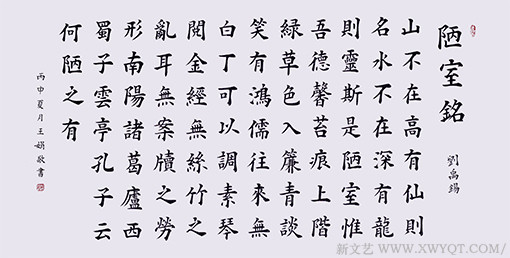 陋室銘
劉禹錫
山不在高有仙則
名水不在深有龍
則靈斯是陋室惟
吾德馨苔痕上階
綠草色入簾青談
笑有鴻儒往來無
白丁可以調素琴
閱金經無絲竹之
亂耳無案牘之勞
形南陽諸葛廬西
蜀子雲亭孔子云
何陋之有
丙申夏月王敬書
新文艺 WWW.XWYQT.COM/